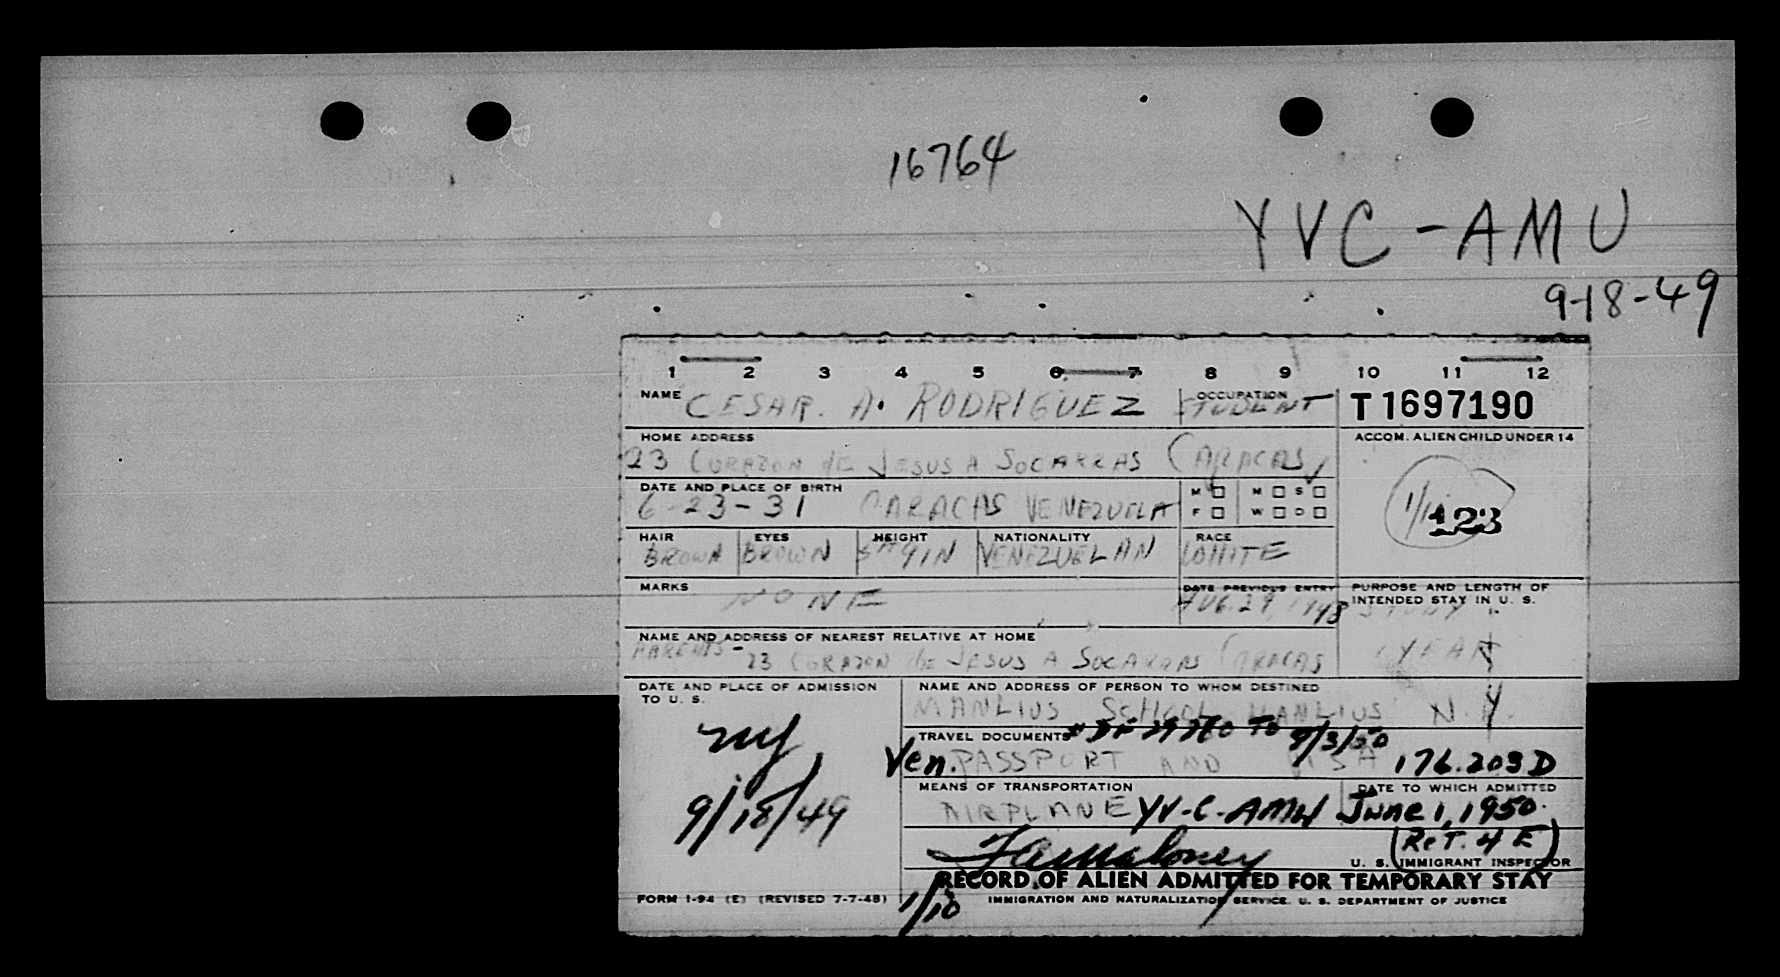 16764
YVC-AMU
9-18-49
1 2 3 4 5 6 7 8 9 10 11 12
NAME CESAR. A. RODRIGUEZ OCCUPATION STUDENT T1697190
HOME ADDRESS ACCOM. ALIEN CHILD UNDER 14
23 CORAZON de JESUS A SOCARRAS CARACAS
DATE AND PLACE OF BIRTH M M S
6-23-31 CARACAS VENEZUELA F W D
123
HAIR EYES HEIGHT NATIONALITY RACE
BROWN BROWN 5 FT 9 IN VENEZUELAN WHITE
MARKS NONE DATE PREVIOUS ENTRY PURPOSE AND LENGTH OF
AUG. 29, 1948 INTENDED STAY IN U. S.
STUDY 1
NAME AND ADDRESS OF NEAREST RELATIVE AT HOME
PARENTS - 23 CORAZON de JESUS A SOCARRAS CARACAS YEAR
DATE AND PLACE OF ADMISSION NAME AND ADDRESS OF PERSON TO WHOM DESTINED
TO U. S. MANLIUS SCHOOL MANLIUS N.Y.
NY TRAVEL DOCUMENTS TO 9/3/50
Ven. PASSPORT AND VISA 176.203D
MEANS OF TRANSPORTATION DATE TO WHICH ADMITTED
9/18/49 AIRPLANE YV-C-AMU June 1, 1950.
(Ret. 4 E)
U. S. IMMIGRANT INSPECTOR
RECORD OF ALIEN ADMITTED FOR TEMPORARY STAY
FORM I-94 (E) (REVISED 7-7-48) 1/10 IMMIGRATION AND NATURALIZATION SERVICE. U. S. DEPARTMENT OF JUSTICE